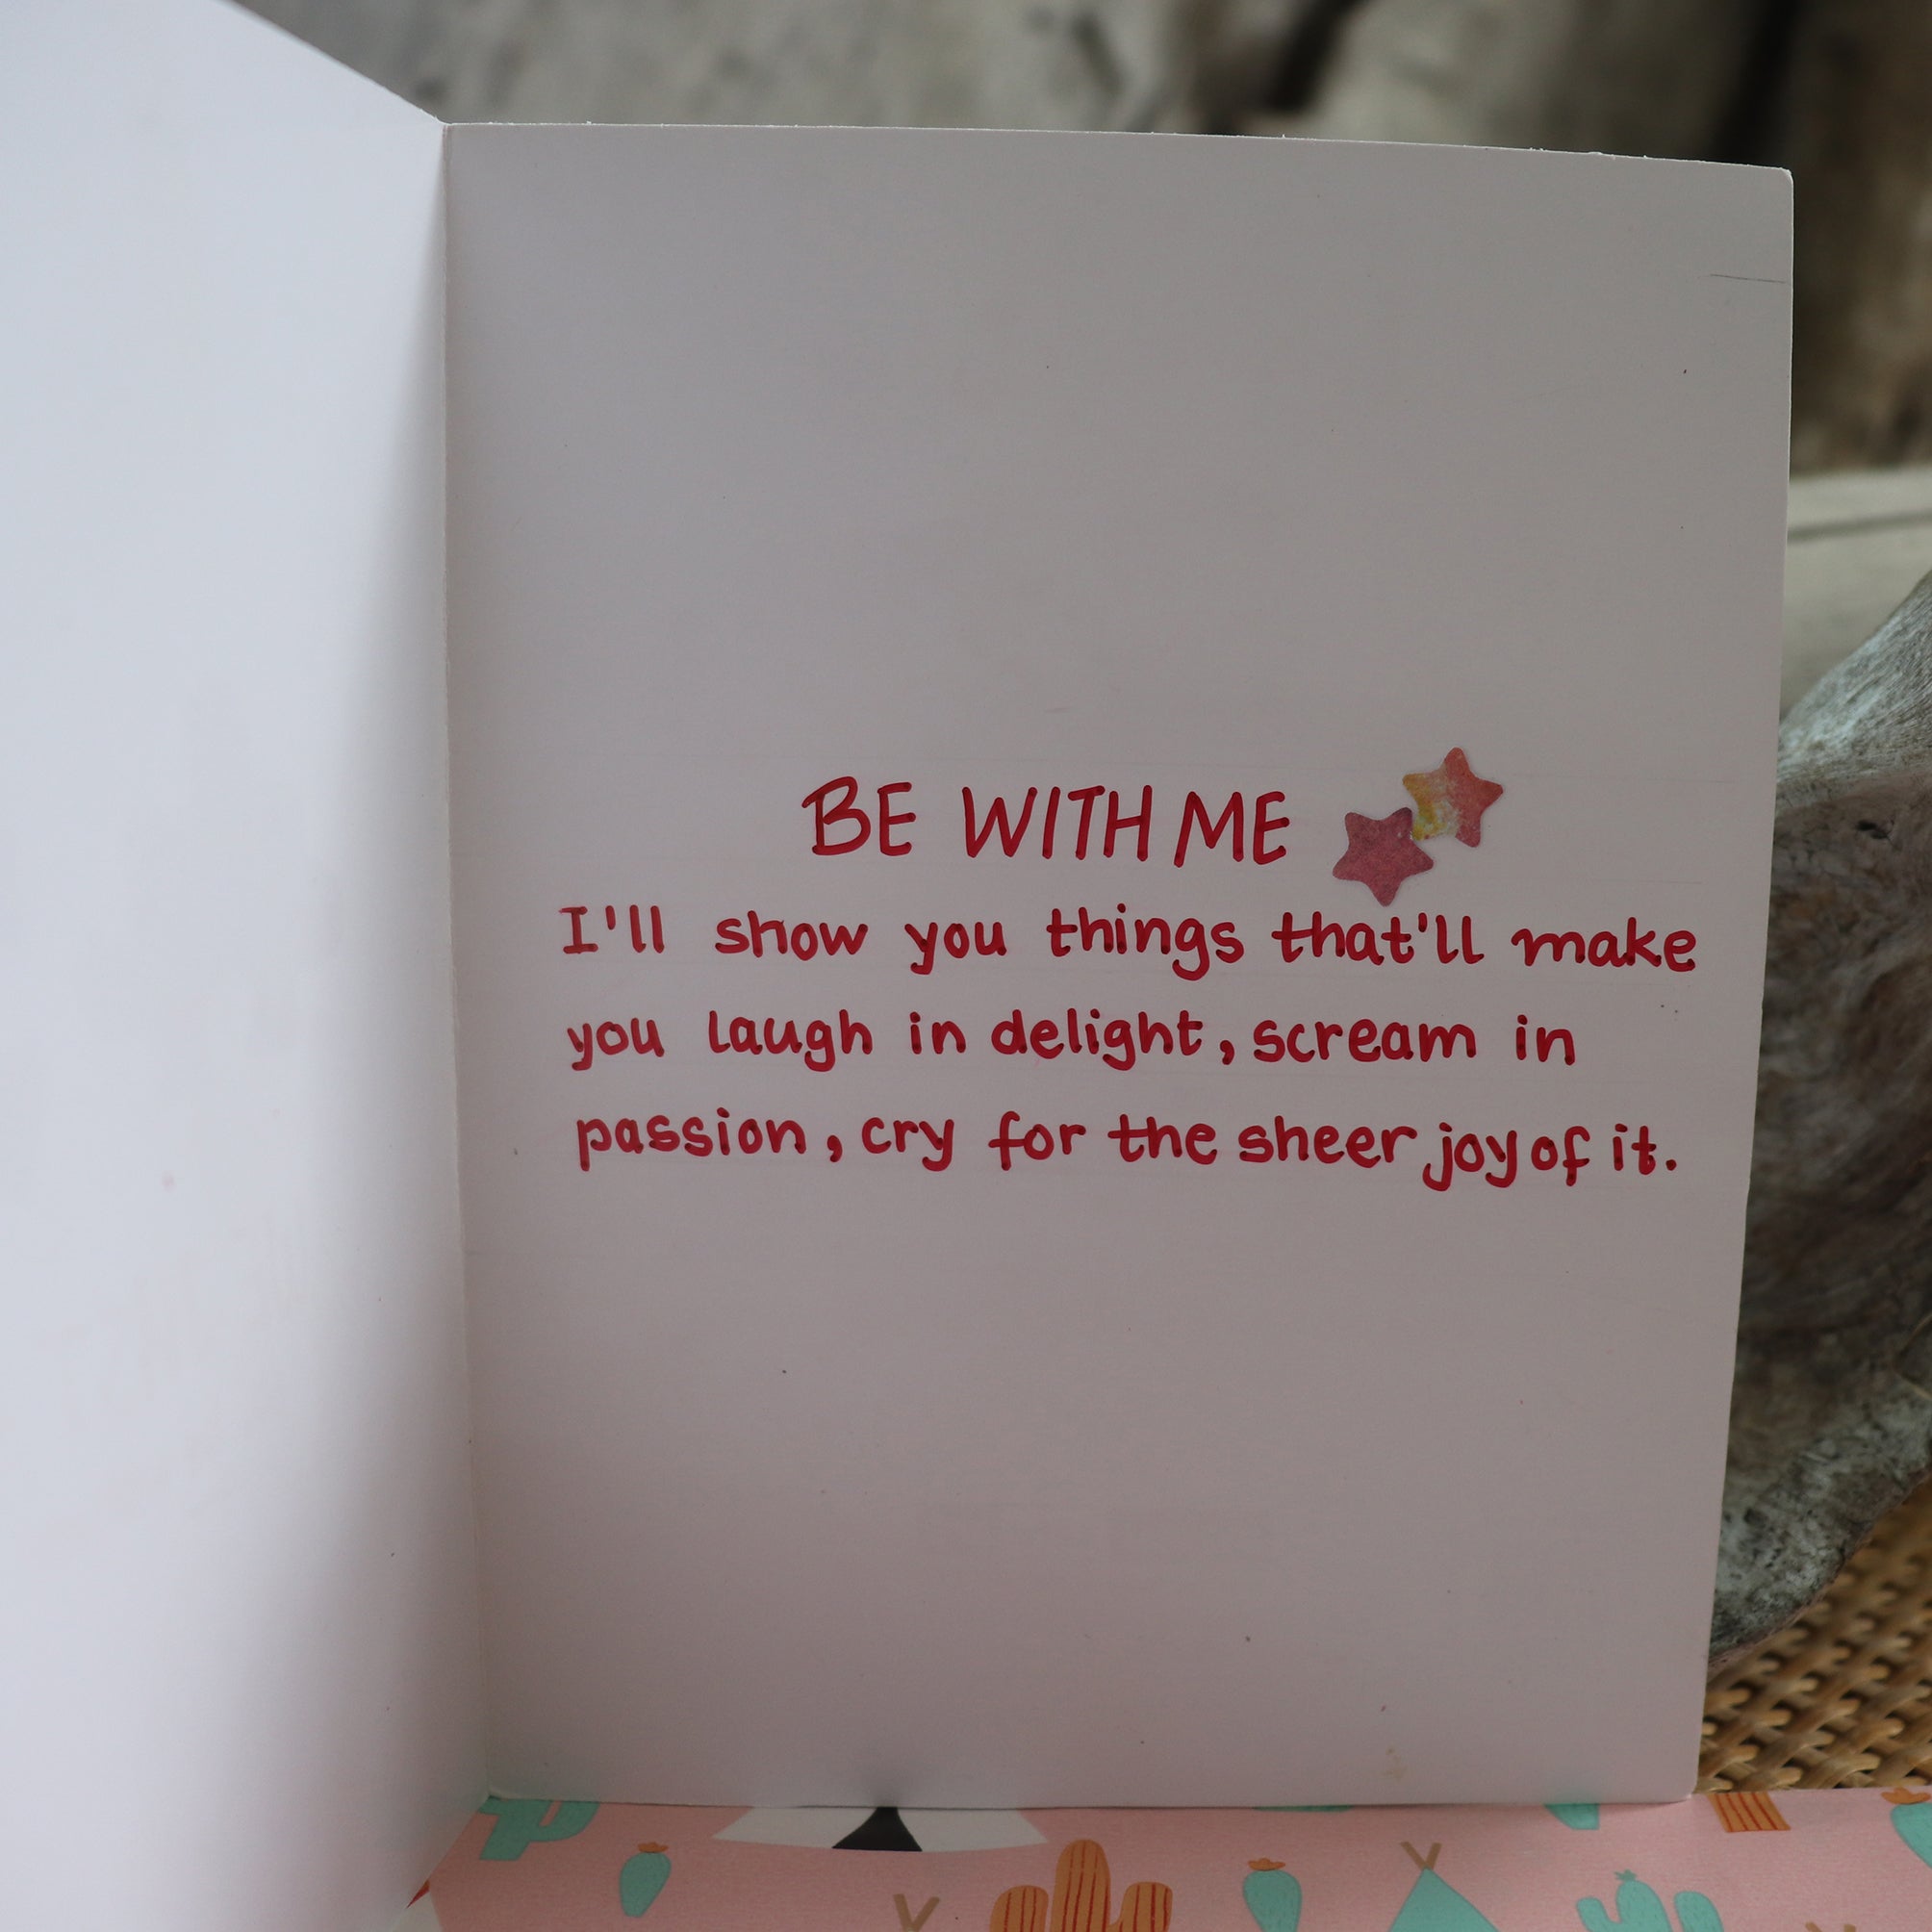 BE WITH ME
I'll show you things that'll make
you laugh in delight, scream in
passion, cry for the sheer joy of it.